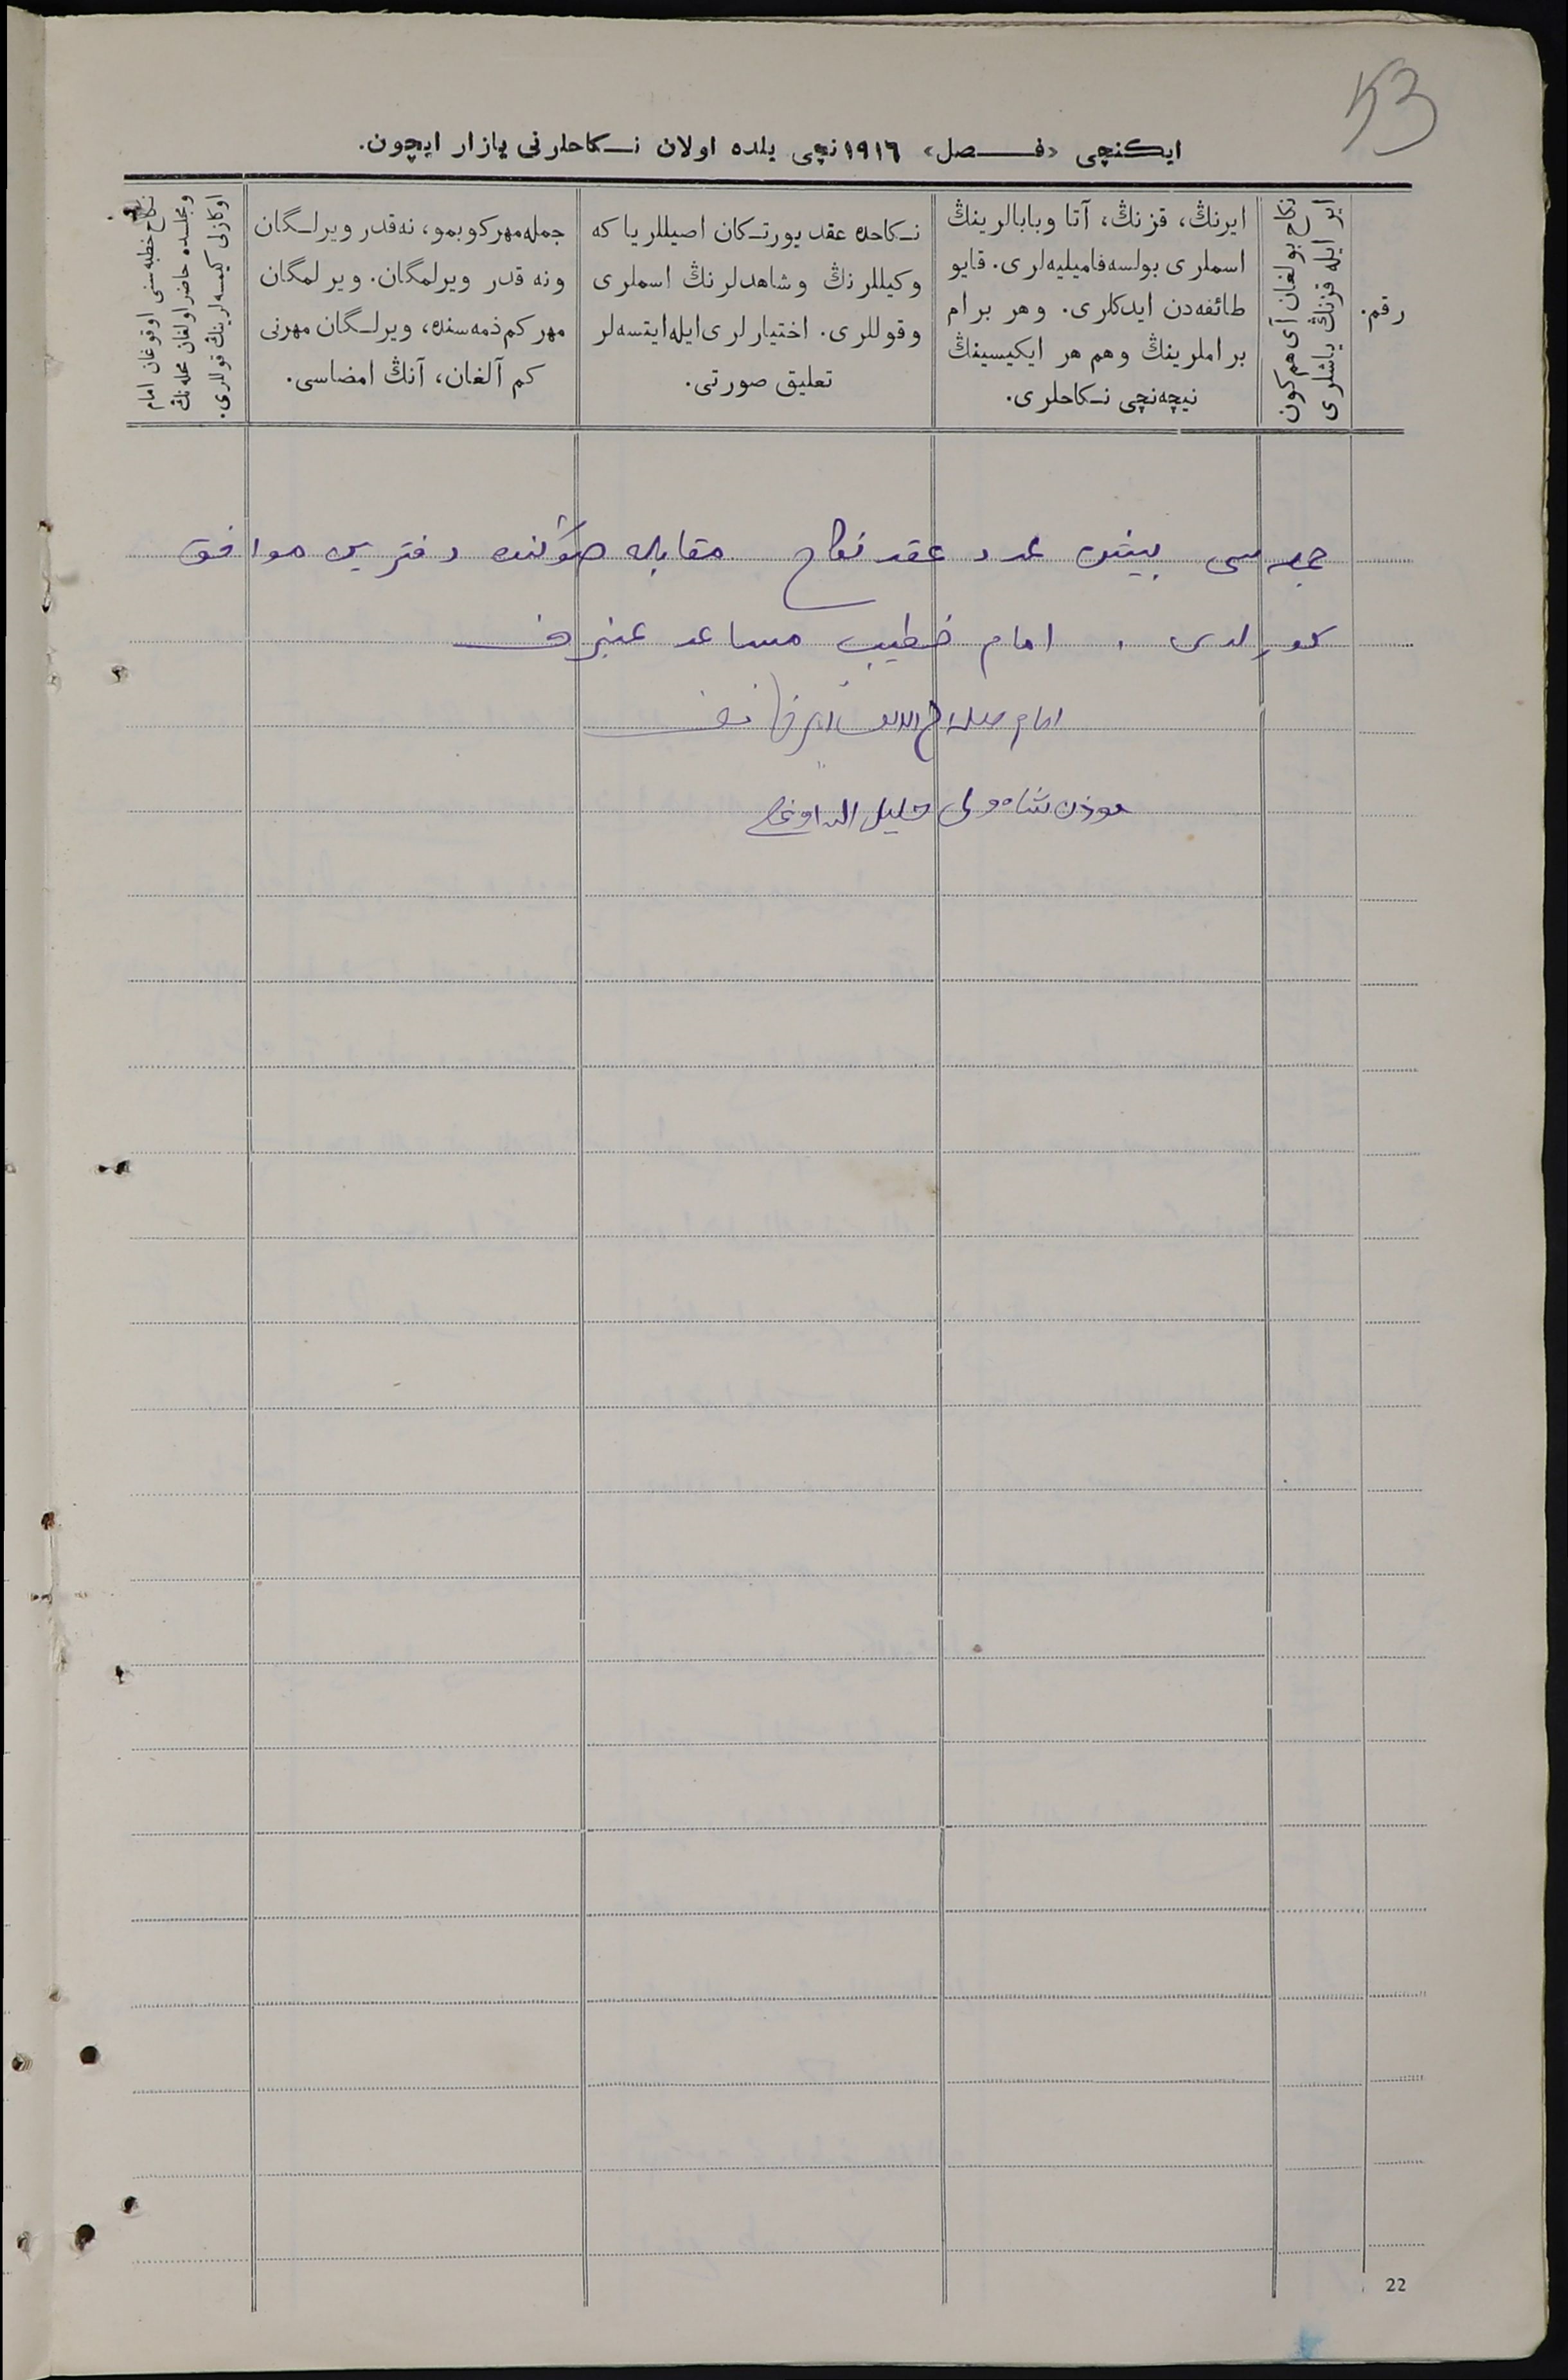 53
ایكنچی «فـصل» ١٩١٦نچی یلده اولان نـكاحلرنی یازار ایچون.
رقم.
نكاح بولغان آی هم كون
ایر ایله قزنڭ یاشلری
ایرنڭ، قزنڭ، آتا وبابالرینڭ
اسملری بولسه‌فامیلیه‌لری. قایو
طائفه‌دن ایدكلری. وهر برام
براملرینڭ وهم هر ایكیسینڭ
نیچه‌نچی نـكاحلری.
نـكاحده عقد یورتـكان اصیللر یا كه
وكیللرنڭ وشاهدلرنڭ اسملری
وقوللری. اختیارلری‌ایله‌ایتسه‌لر
تعلیق صورتی.
جمله‌مهركوبمو، نه‌قدر ویرلـگان
ونه قدر ویرلمگان. ویرلمگان
مهر كم‌ذمه‌سنده، ویرلـگان مهرنی
كم آلغان، آنڭ امضاسی.
نكاح خطبه‌سنی اوقوغان امام
ومجلسده حاضر اولغان محله‌نڭ
اوكازلی كیمسه‌لرینڭ قوللری.
جمله‌سی بیش عدد عقد نكاح مقابله صوڭنده دفترین موافق
كورلدی . امام خطیب مساعد عنبروف
امام صلاح الدین
موذن شاه ولی خلیل الله اوغلی
22